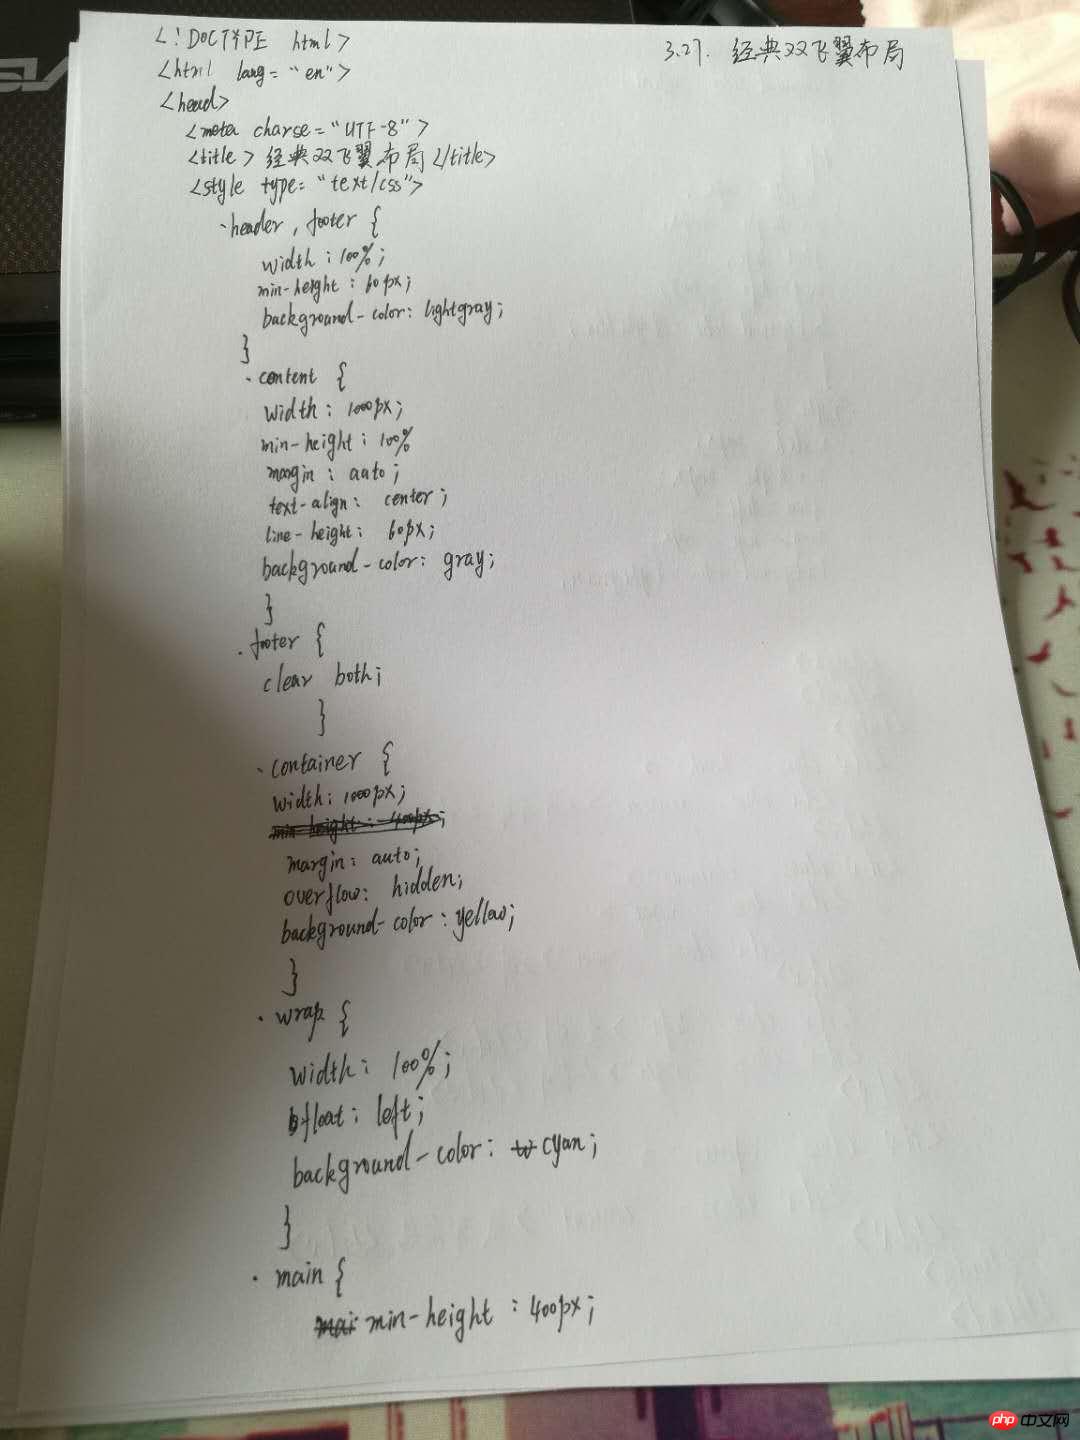 3.27. 经典双飞翼布局
<!DOCTYPE html>
<html lang="en">
<head>
<meta charse="UTF-8">
<title>经典双飞翼布局</title>
<style type="text/css">
.header, footer {
width:100%;
min-height:60px;
background-color:lightgray;
}
.content {
width:1000px;
min-height:100%
margin:aato;
text-align:center;
line-height:60px;
background-color:gray;
}
.footer {
clear both;
}
.container {
width:1000px;
min-height:400px;
margin:auto;
overflow:hidden;
background-color:yellow;
}
.wrap {
width:100%;
float:left;
background-color:cyan;
}
.main {
mai min-height:400px;
php 中文网